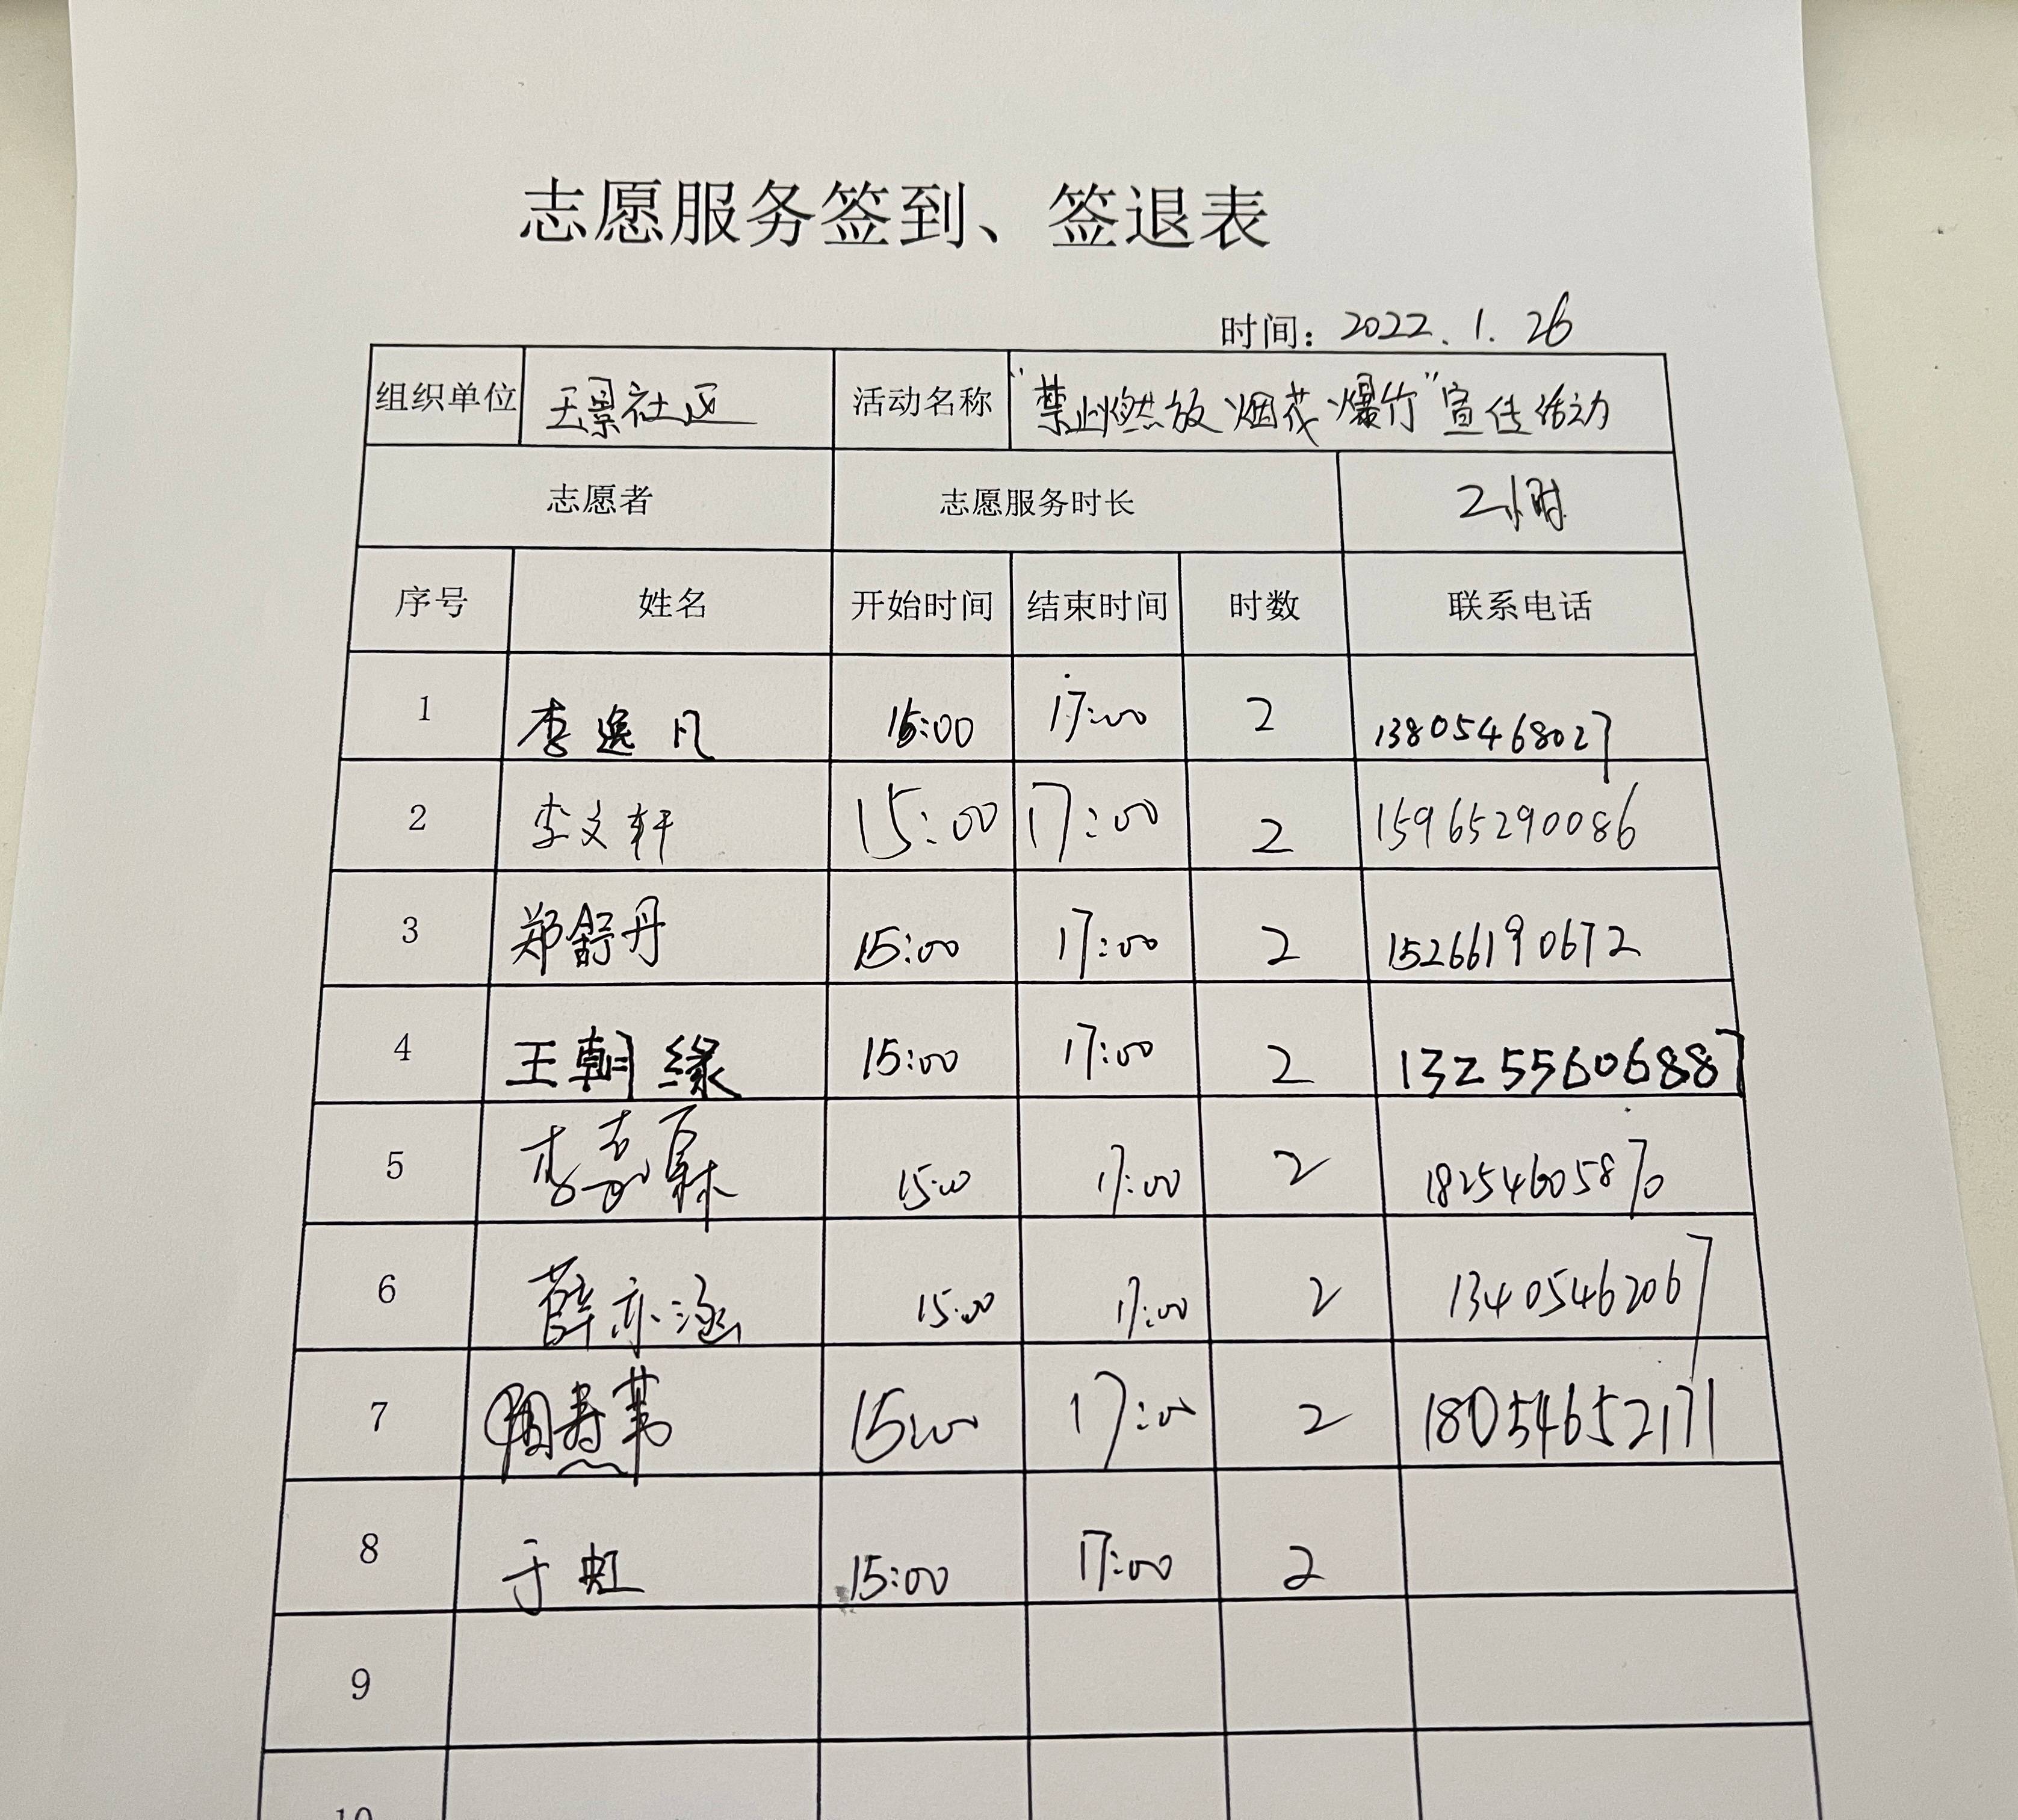 志愿服务签到、签退表
时间：2022.1.26
组织单位 天景社区 活动名称 "禁止燃放烟花爆竹"宣传活动
志愿者 志愿服务时长 2小时
序号 姓名 开始时间 结束时间 时数 联系电话
1 李逸凡 15:00 17:00 2 13805468027
2 李文轩 15:00 17:00 2 15965290086
3 郑舒丹 15:00 17:00 2 15266190672
4 王朝缘 15:00 17:00 2 13255606887
5 李 15:00 17:00 2 18254605870
6 薛亦涵 15:00 17:00 2 13405462067
7 15:00 17:00 2 18054652171
8 于虹 15:00 17:00 2
9
10